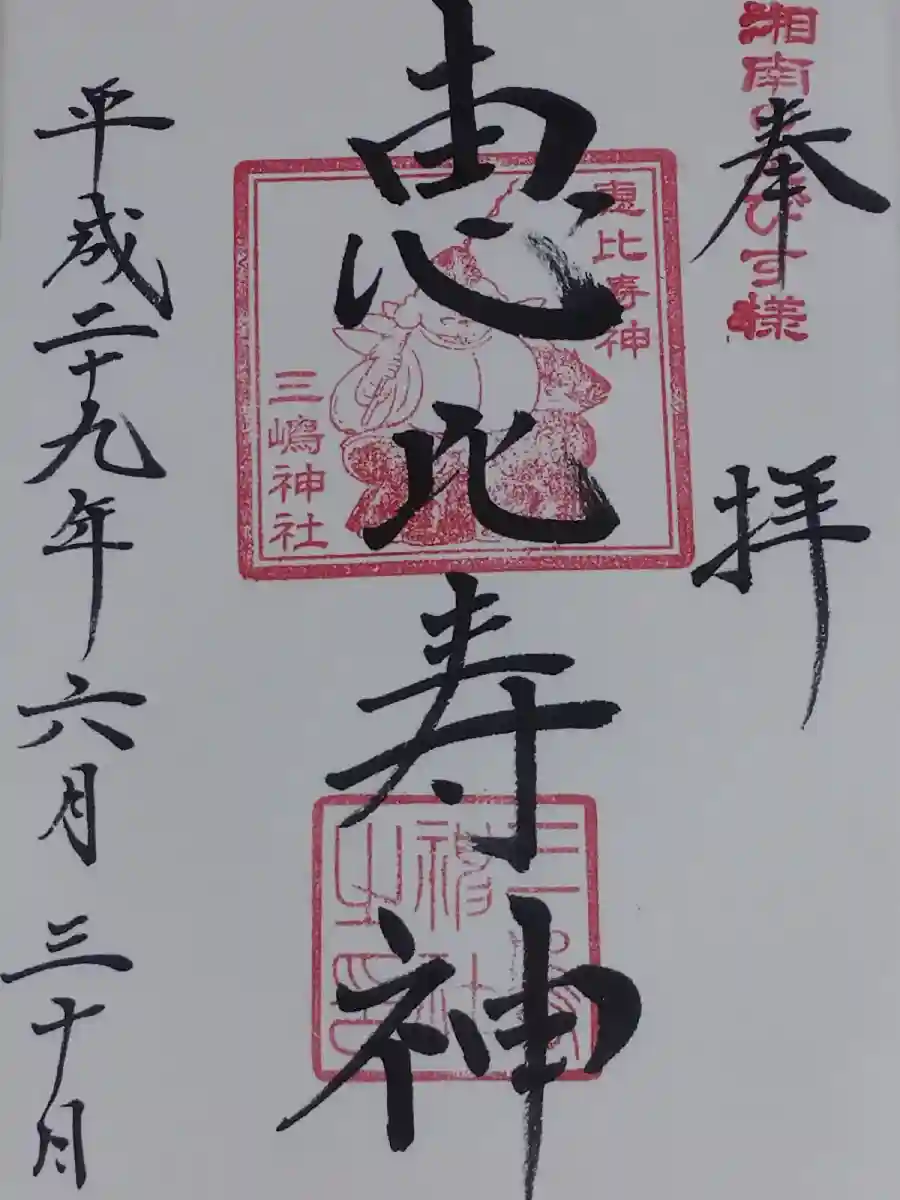 湘南のえびす様
奉拝
恵比寿神
恵比寿神
三嶋神社
三嶋神社之印
平成二十九年六月三十日